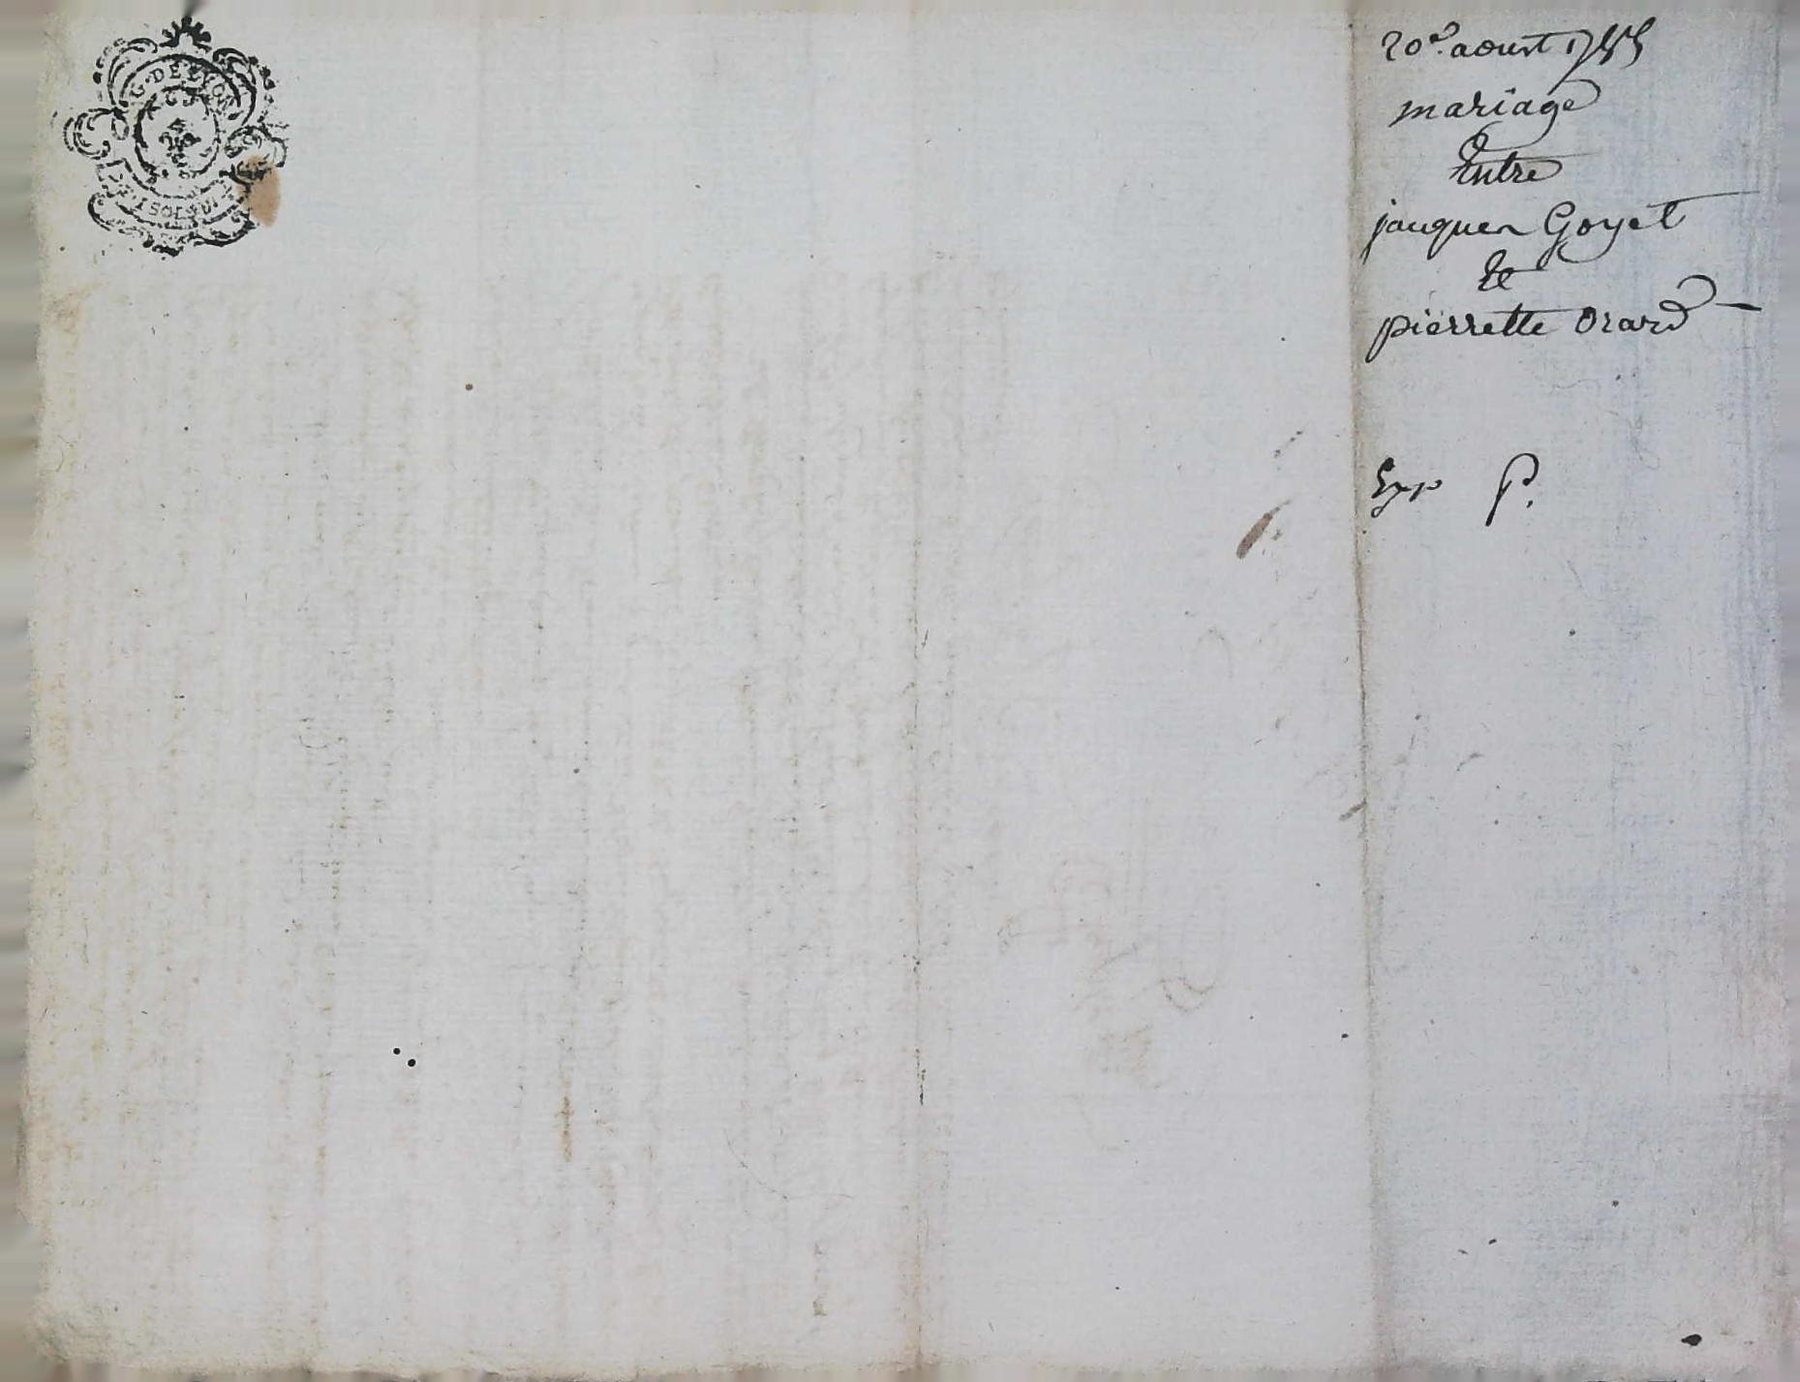 G. DE LYON
20e. aoust 1755
mariage
Entre
jacques Goyet
Et
pierrette Orard
Exp P.